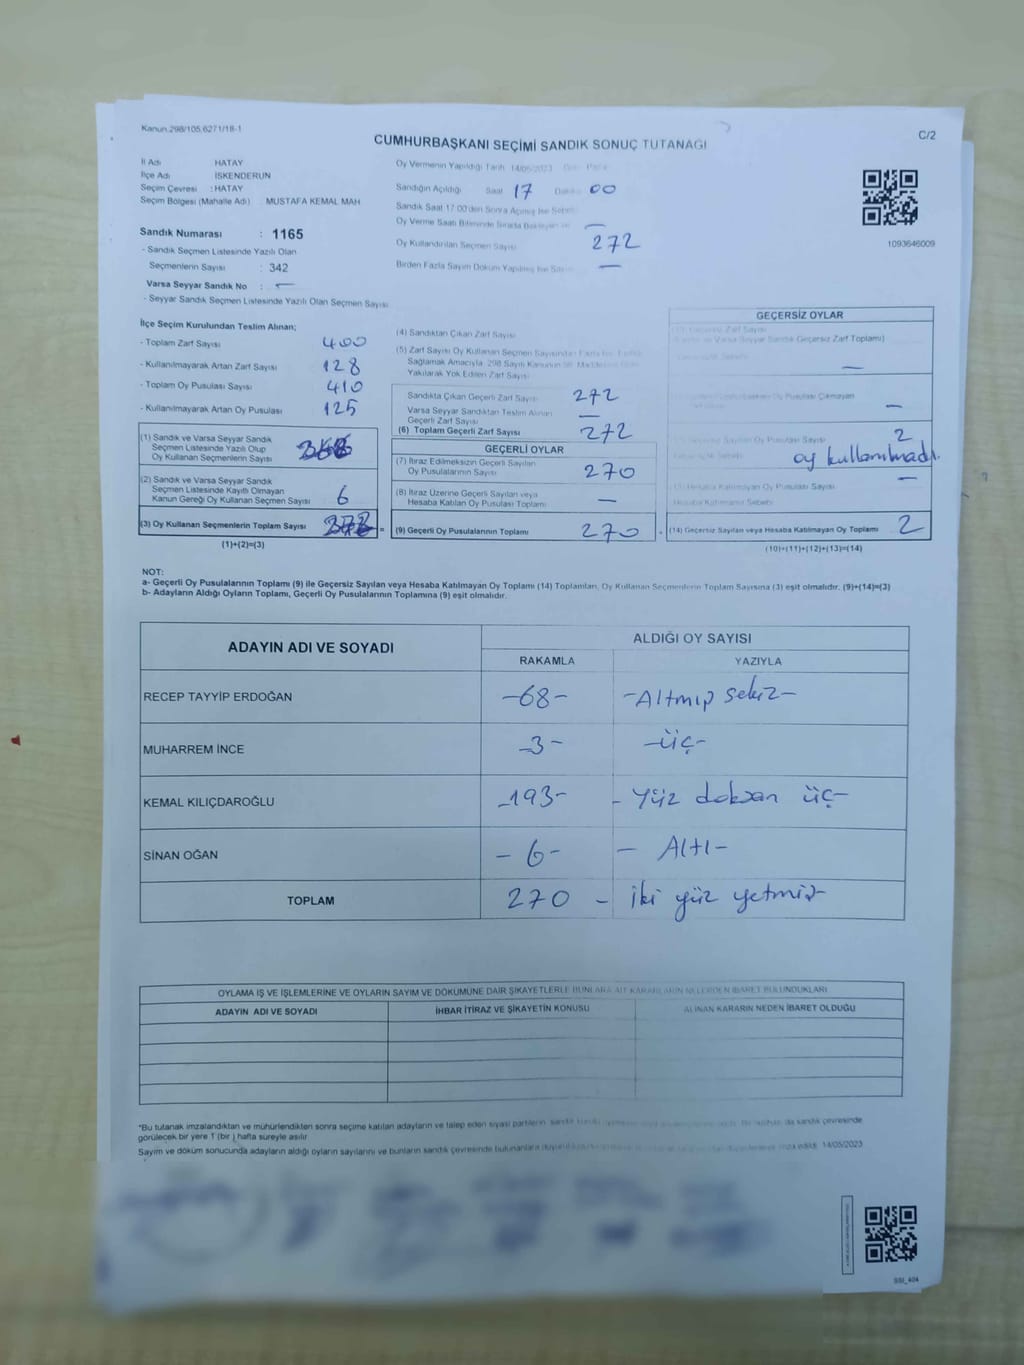 Kanun.298/105,6271/18-1
C/2
CUMHURBAŞKANI SEÇİMİ SANDIK SONUÇ TUTANAĞI
İl Adı HATAY
İlçe Adı İSKENDERUN
Seçim Çevresi : HATAY
Seçim Bölgesi (Mahalle Adı) MUSTAFA KEMAL MAH
Sandık Numarası : 1165
- Sandık Seçmen Listesinde Yazılı Olan
Seçmenlerin Sayısı : 342
Varsa Seyyar Sandık No : —
- Seyyar Sandık Seçmen Listesinde Yazılı Olan Seçmen Sayısı
Oy Vermenin Yapıldığı Tarih 14/05/2023
Sandığın Açıldığı Saat 17 Dakika 00
Sandık Saat 17:00'den Sonra Açılmış İse Sebebi
Oy Verme Saati Bitiminde Sırada Bekleyen —
Oy Kullandırılan Seçmen Sayısı 272
Birden Fazla Sayım Döküm Yapılmış İse —
1093646009
İlçe Seçim Kurulundan Teslim Alınan;
- Toplam Zarf Sayısı 400
- Kullanılmayarak Artan Zarf Sayısı 128
- Toplam Oy Pusulası Sayısı 410
- Kullanılmayarak Artan Oy Pusulası 125
(1) Sandık ve Varsa Seyyar Sandık
Seçmen Listesinde Yazılı Olup
Oy Kullanan Seçmenlerin Sayısı
(2) Sandık ve Varsa Seyyar Sandık
Seçmen Listesinde Kayıtlı Olmayan
Kanun Gereği Oy Kullanan Seçmen Sayısı 6
(3) Oy Kullanan Seçmenlerin Toplam Sayısı
=
(1)+(2)=(3)
(4) Sandıktan Çıkan Zarf Sayısı
(5) Zarf Sayısı Oy Kullanan Seçmen Sayısından Fazla İse
Sağlamak Amacıyla, 298 Sayılı Kanunun 98.
Yakılarak Yok Edilen Zarf Sayısı
Sandıkta Çıkan Geçerli Zarf Sayısı 272
Varsa Seyyar Sandıktan Teslim Alınan
Geçerli Zarf Sayısı —
(6) Toplam Geçerli Zarf Sayısı 272
GEÇERLİ OYLAR
(7) İtiraz Edilmeksizin Geçerli Sayılan
Oy Pusulalarının Sayısı 270
(8) İtiraz Üzerine Geçerli Sayılan veya
Hesaba Katılan Oy Pusulası Toplamı —
(9) Geçerli Oy Pusulalarının Toplamı 270
GEÇERSİZ OYLAR
Geçersiz Zarf Sayısı
ve Varsa Seyyar Sandık Geçersiz Zarf Toplamı)
—
Oy Pusulası Çıkmayan
—
Geçersiz Sayılan Oy Pusulası Sayısı 2
oy kullanılmadı.
Hesaba Katılmayan Oy Pusulası Sayısı —
Hesaba Katılmama Sebebi
(14) Geçersiz Sayılan veya Hesaba Katılmayan Oy Toplamı 2
(10)+(11)+(12)+(13)=(14)
NOT:
a- Geçerli Oy Pusulalarının Toplamı (9) ile Geçersiz Sayılan veya Hesaba Katılmayan Oy Toplamı (14) Toplamları, Oy Kullanan Seçmenlerin Toplam Sayısına (3) eşit olmalıdır. (9)+(14)=(3)
b- Adayların Aldığı Oyların Toplamı, Geçerli Oy Pusulalarının Toplamına (9) eşit olmalıdır.
ADAYIN ADI VE SOYADI
ALDIĞI OY SAYISI
RAKAMLA YAZIYLA
RECEP TAYYİP ERDOĞAN -68- -Altmış sekiz-
MUHARREM İNCE -3- -üç-
KEMAL KILIÇDAROĞLU -193- - Yüz doksan üç-
SİNAN OĞAN - 6 - - Altı-
TOPLAM 270 - iki yüz yetmiş
OYLAMA İŞ VE İŞLEMLERİNE VE OYLARIN SAYIM VE DÖKÜMÜNE DAİR ŞİKAYETLERLE BUNLARA AİT KARARLARIN NELERDEN İBARET BULUNDUKLARI
ADAYIN ADI VE SOYADI İHBAR İTİRAZ VE ŞİKAYETİN KONUSU ALINAN KARARIN NEDEN İBARET OLDUĞU
*Bu tutanak imzalandıktan ve mühürlendikten sonra seçime katılan adayların ve talep eden siyasi partilerin sandık çevresinde
görülecek bir yere 1 (bir ) hafta süreyle asılır
Sayım ve döküm sonucunda adayların aldığı oyların sayılarını ve bunların sandık çevresinde bulunanlara 14/05/2023
SSI_404